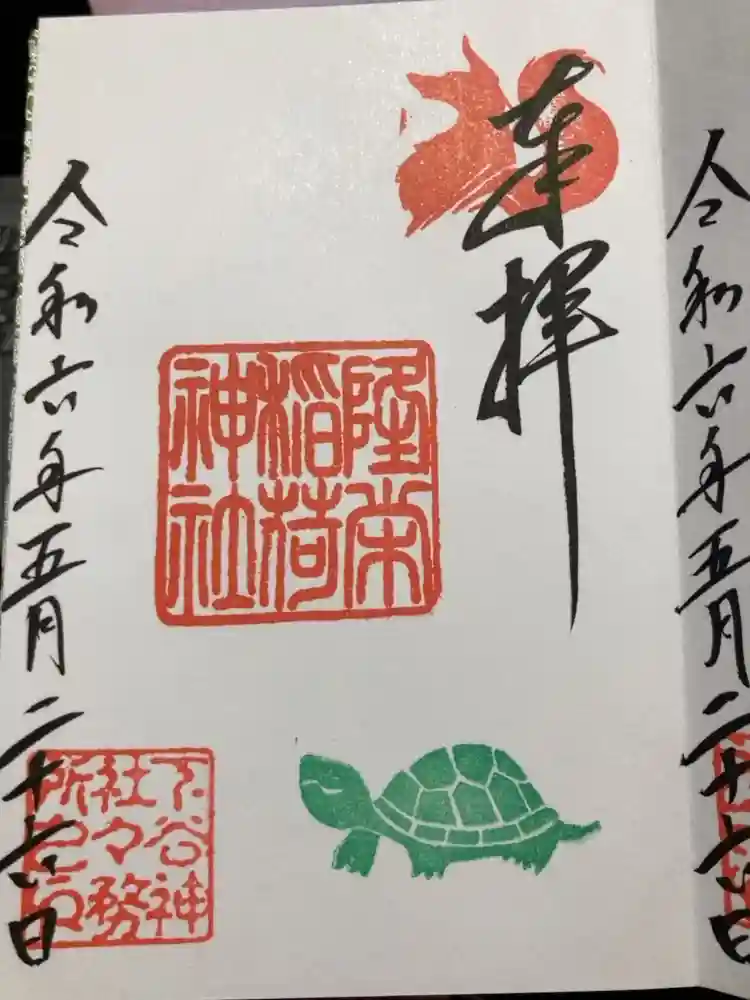 奉拝
隆栄
稲荷
神社
下谷神
社々務
所之印
令和六年五月二十六日
令和六年五月二十六日